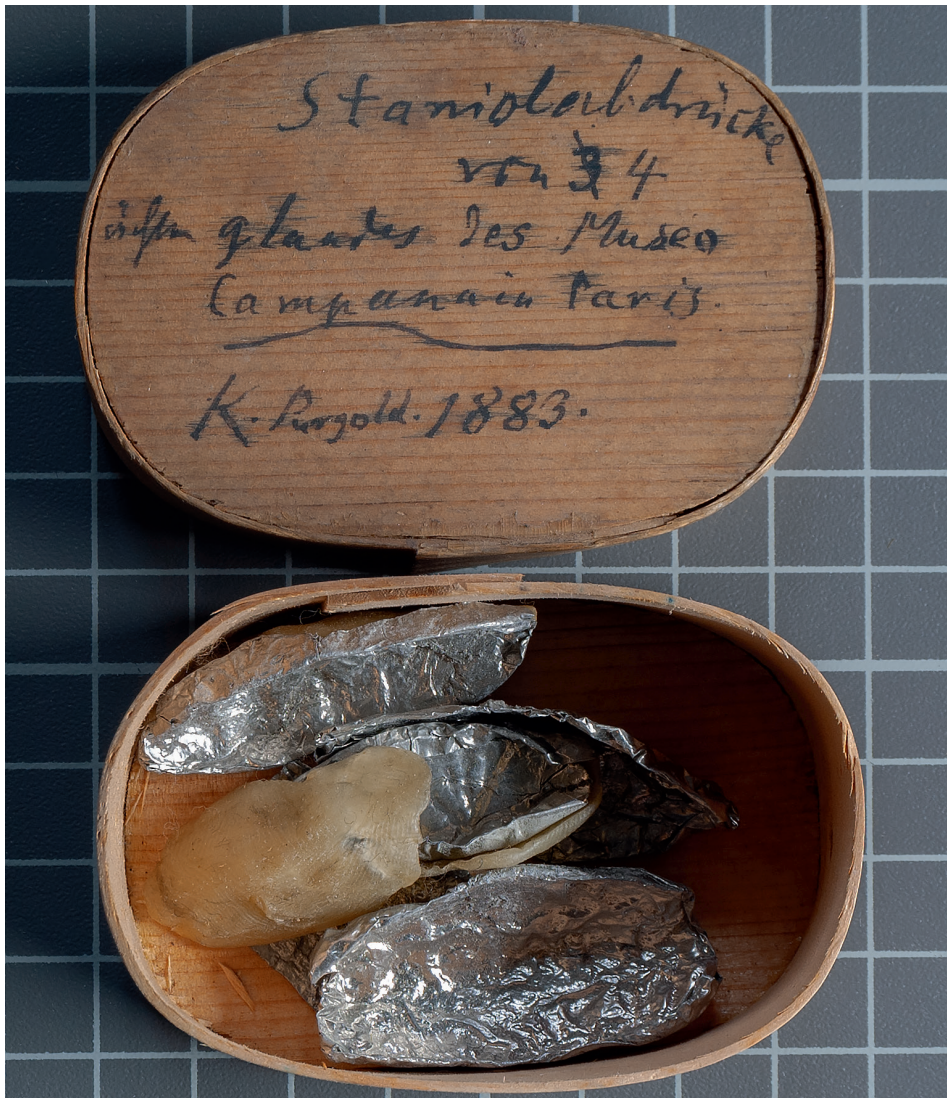 Staniolabdrücke
von 4
ächten glandes des Museo
Campanain Paris.
K. Purgold. 1883.